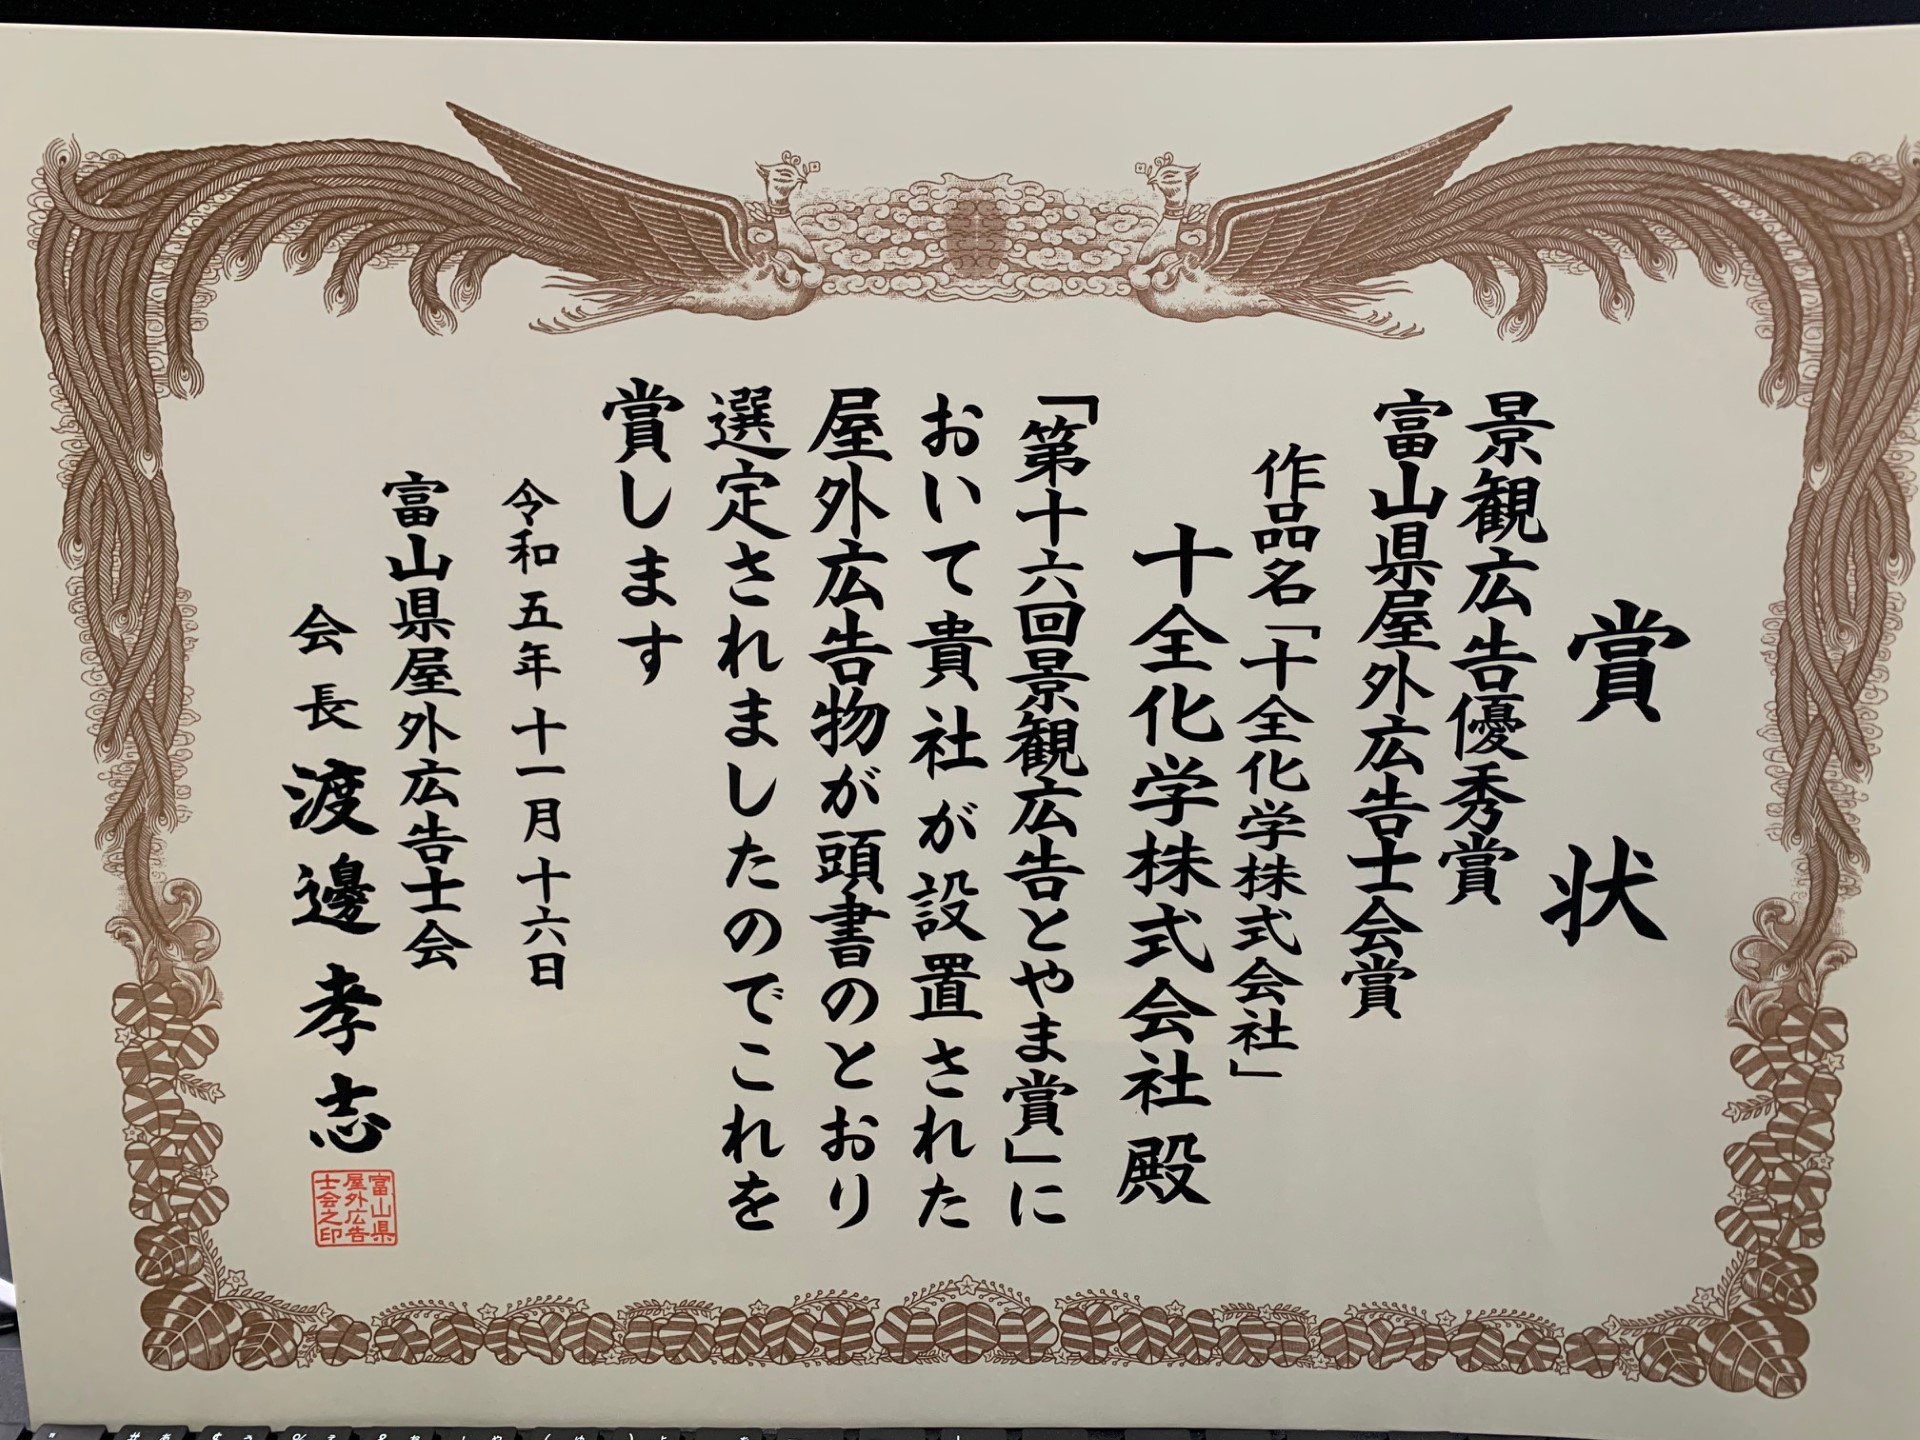 賞状
景観広告優秀賞
富山県屋外広告士会賞
作品名「十全化学株式会社」
十全化学株式会社 殿
「第十六回景観広告とやま賞」に
おいて貴社が設置された
屋外広告物が頭書のとおり
選定されましたのでこれを
賞します
令和五年十一月十六日
富山県屋外広告士会
会長 渡邊孝志
富山県
屋外広告
士会之印